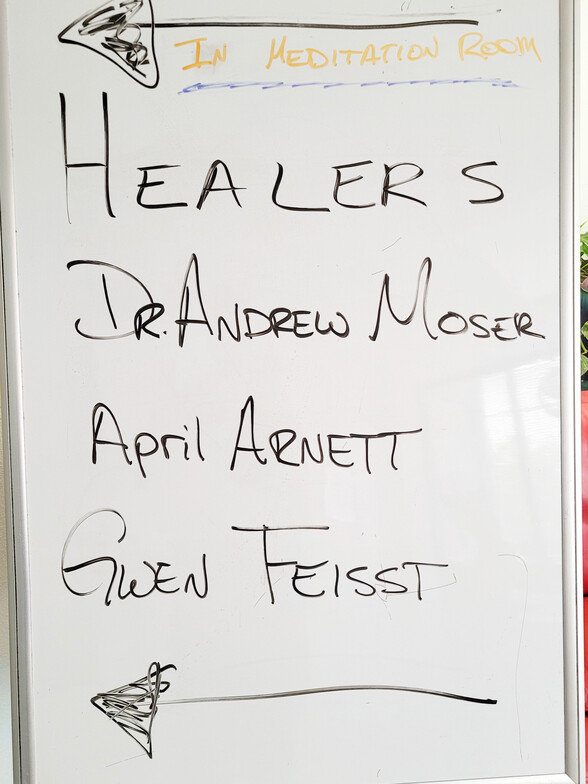 In MEDITATION ROOM
HEALERS
DR. ANDREW MOSER
April ARNETT
GWEN FEISST